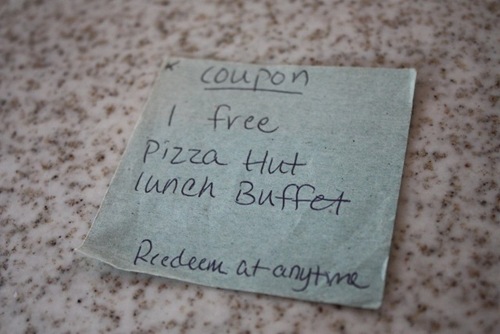 * coupon
1 free
Pizza Hut
lunch Buffet
Reedeem at anytime